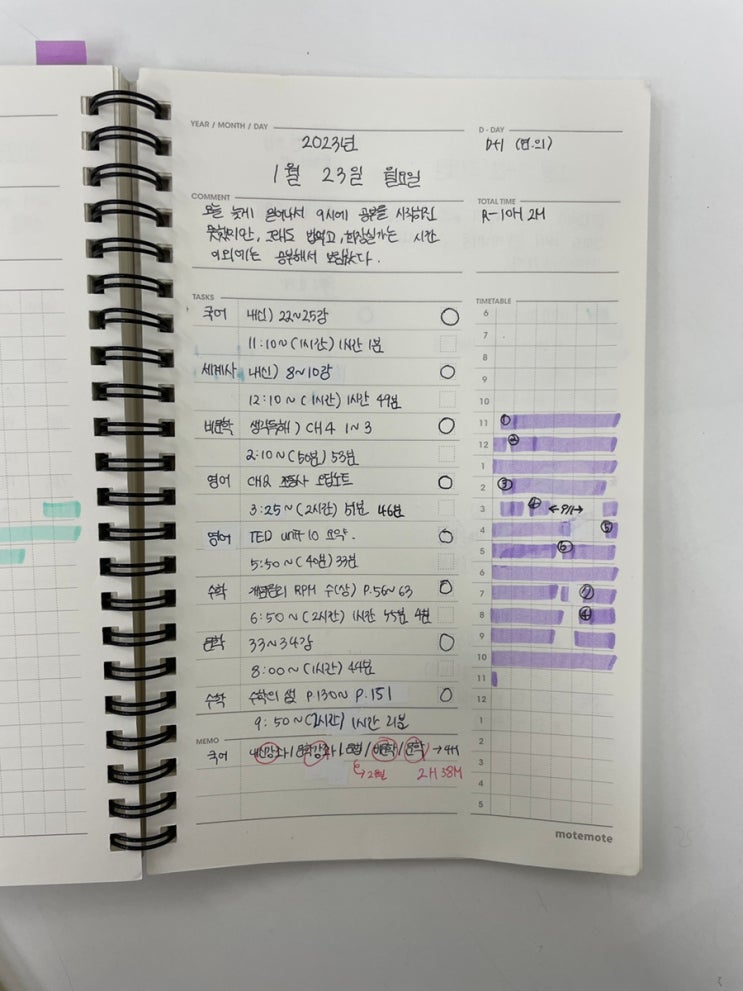 YEAR / MONTH / DAY
2023년
1월 23일 월요일
D - DAY
D+1 (연.의)
COMMENT
오늘 늦게 일어나서 9시에 공부를 시작하진
못했지만, 그래도 밥먹고, 화장실가는 시간
이외에는 공부해서 보람찼다.
TOTAL TIME
R-10H 2M
TASKS
국어 내신) 22~25강
11:10~(1시간) 1시간 1분
세계사 내신) 8~10강
12:10~(1시간) 1시간 49분
비문학 생각독해) CH4 1~3
2:10~(50분) 53분
영어 CH2 조동사 오답노트
3:25~(2시간) 51분 46분
영어 TED unit 10 요약.
5:50~(40분) 33분
수학 개념원리 RPM 수(상) P.56~63
6:50~(2시간) 1시간 45분 4분
문학 33~34강
8:00~(1시간) 44분
수학 수학의 샘 P.130~ P.151
9:50~(2시간) 1시간 21분
TIMETABLE
6
7
8
9
10
11 ①
12 ②
1
2 ③
3 ④
4 ⑤
5 ⑥
6
7 ⑦
8 ④
9
10
11
12
1
2
3
4
5
MEMO
국어 내신강의 / 문학강의 / / 비문학 / 문학 → 4H
2H 38M
motemote